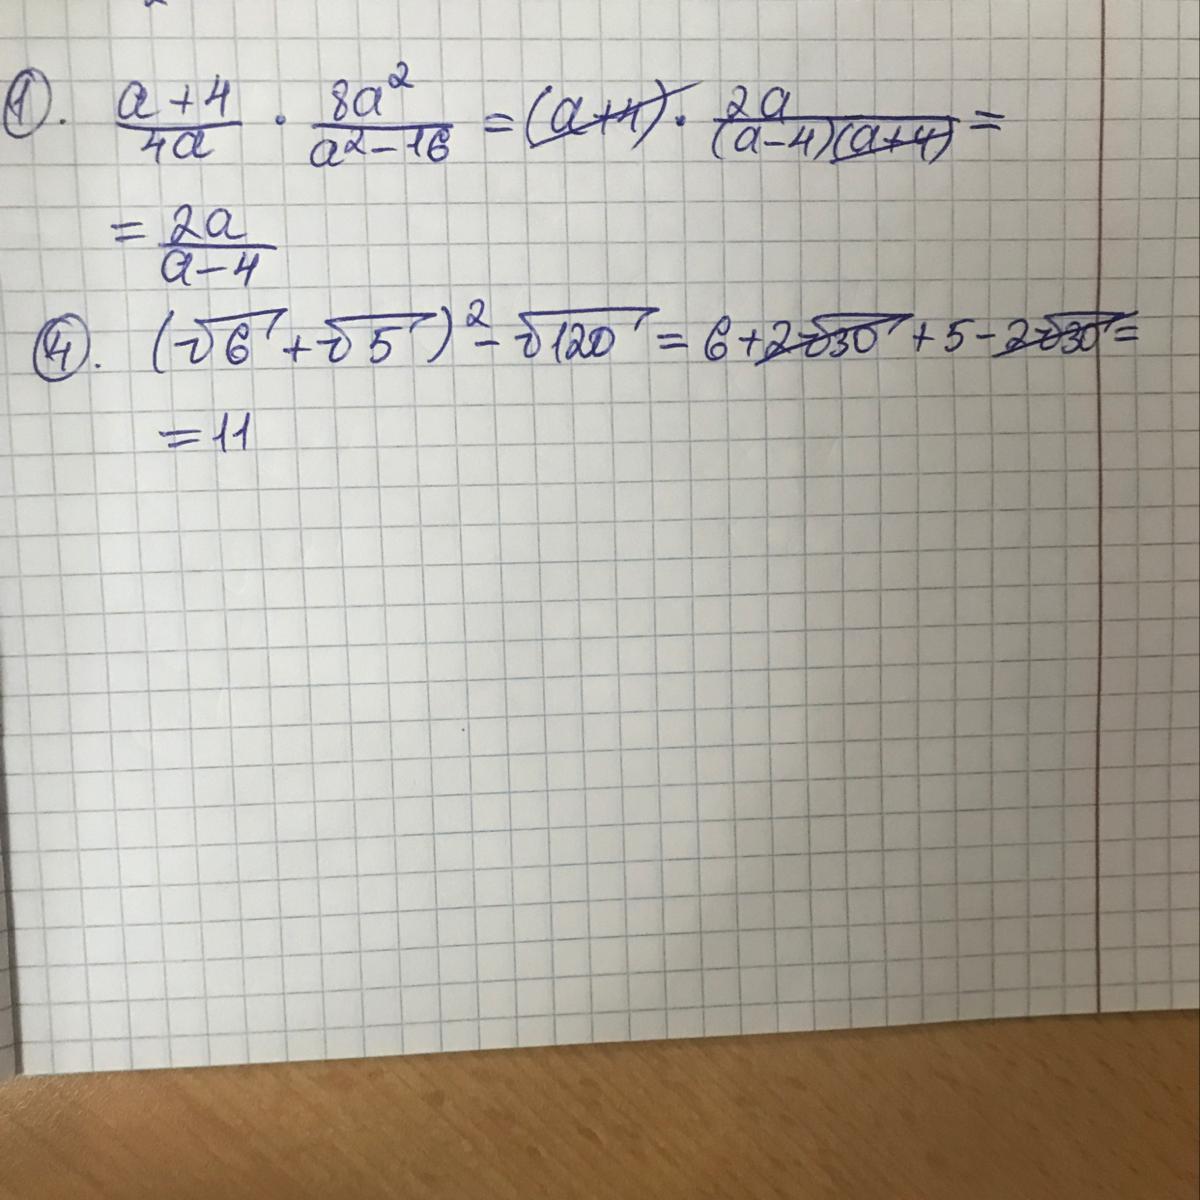 1. (a+4)/(4a) · (8a²)/(a²-16) = (a+4) · (2a)/((a-4)(a+4)) =
= (2a)/(a-4)
4. (√6 + √5)² - √120 = 6 + 2√30 + 5 - 2√30 =
= 11